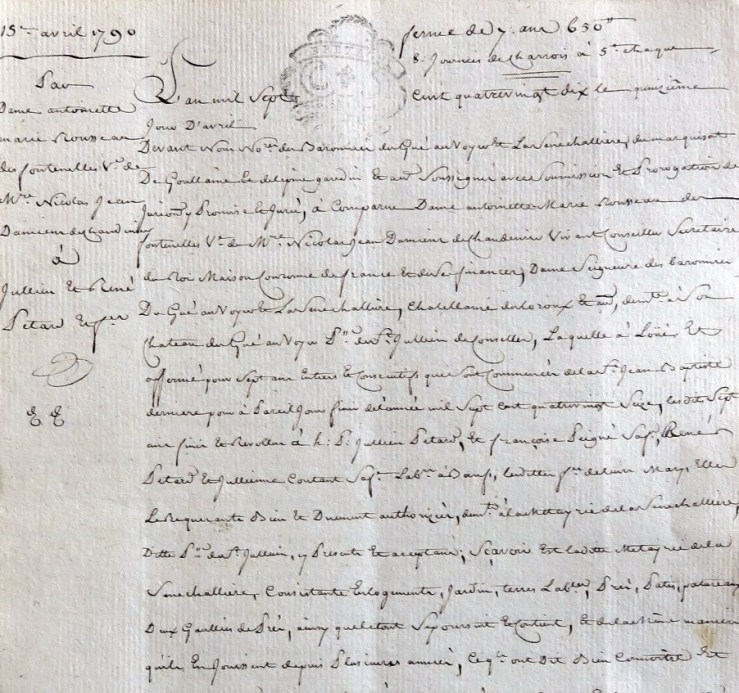 15e avril 1790
ferme de 7. ans 650tt
8. Journées de Charrois à 5s chaque
Par
Dame antoinette
marie Rousseau
des fontenelles Ve de
Mre Nicolas Jean
Damieu de Chanduire
à
Jullien Et René
Petard &
L'an mil Sept Cent quatrevingt dix le quinzième
Jour D'avril
Devant Nous Nores des Baronnies du Gué au Voyer Et La Senechallière, du marquisat
De Goullaine Soussigné avec Soumission Et Prorogation de
Jurion y Promise Et Jurée, à Comparue Dame antoinette Marie Rousseau des
fontenelles Ve de Mre Nicolas Jean Damieu de Chanduire Vivant Conseiller Secretaire
du Roi Maison Couronne de france Et de Ses finances, Dame Seigneure des baronnies
Du Gué au Voyer Et La Senechallière, Chatellanie du Loroux Et au, demte à Son
Chateau du Gué au Voyer Psse de St Jullien de Concelles, Laquelle à Loüé Et
affermé pour Sept ans Entiers Et Consecutifs qui Sont Commencés de la St Jean Baptiste
derniere pour à Pareil Jour finir de l'année mil Sept Cent quatrevingt Seize, lesdits Sept
ans finis Et Revollus à h. P. Jullien Petard, Et françoise Peigné Sa fe, René
Petard Et Jullienne Coutant Sa fe Labrs à Bœufs, lesdittes fes de leurs Maris, Elles
Le Requerante Bien Et Duement authorizées, demts à la Mettayrie de la Senechallière,
Ditte Psse de St Jullien, y Presents Et acceptans; Sçavoir Est laditte Metayrie de la
Senechallière, Consistante En logements, Jardin, terres Lables, Prés, Patis,
Deux Gaulles de Pré, ainsy que le tout Se poursuit Et Contient, Et de la même maniere
qu'ils En Jouissent depuis Plusieurs années, ce qu'ont Dit Bien Connoitre Et